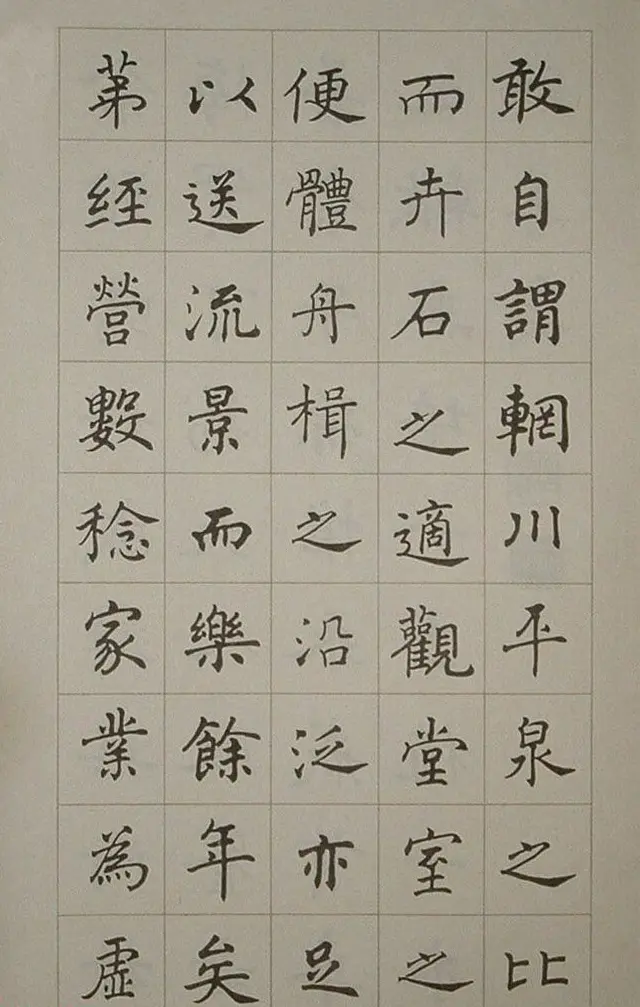 敢自謂輞川平泉之比
而卉石之適觀堂室之
便體舟楫之沿泛亦足
以送流景而樂餘年矣
苐經營數稔家業為虛